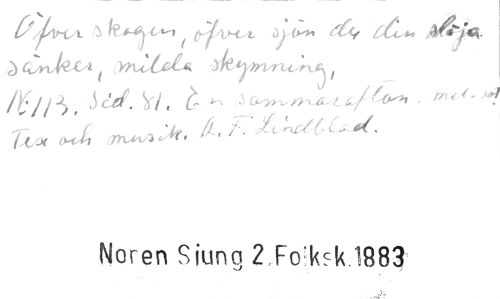 Öfver skogen, öfver sjön du din slöja
sänker, milda skymning,
N:113. Sid. 81. En sommarafton. mel. o.
Tex och musik. A. F. Lindblad.
Noren Sjung 2, Folksk. 1883